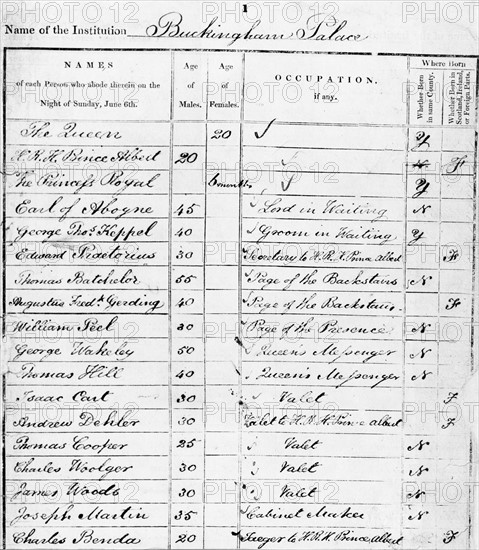 1
Name of the Institution Buckingham Palace
NAMES
of each Person who abode therein on the
Night of Sunday, June 6th.
Age
of
Males.
Age
of
Females.
OCCUPATION,
if any.
Where Born
Whether Born
in same County.
Whether Born in
Scotland, Ireland,
or Foreign Parts.
The Queen 20 Y
H.R.H. Prince Albert 20 F
The Princess Royal 6 months Y
Earl of Aboyne 45 Lord in Waiting N
George Thos. Keppel 40 Groom in Waiting Y
Edward Praetorius 30 Secretary to H.R.H. Prince Albert F
Thomas Batchelor 55 Page of the Backstairs N
Augustus Fredk. Gerding 40 Page of the Backstairs F
William Peel 30 Page of the Presence N
George Wakeley 50 Queen's Messenger N
Thomas Hill 40 Queen's Messenger N
Isaac Cart 30 Valet F
Andrew Dehler 30 Valet to H.R.H. Prince Albert F
Thomas Cooper 25 Valet N
Charles Woolger 30 Valet N
James Woods 30 Valet N
Joseph Martin 35 Cabinet Maker N
Charles Benda 20 Jaeger to H.R.H. Prince Albert F
PHOTO12